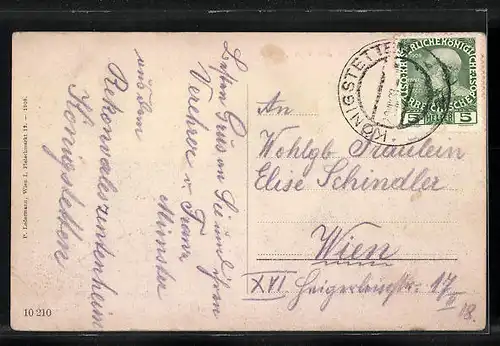 Besten Gruss an Sie und Ihren
Verehrer v. Franz
Münster
aus dem
Rekonvaleszentenheim
Königstetten
P. Ledermann, Wien I. Fleischmarkt 12. — 1908.
10 210
KÖNIGSTETTEN
KAISERLICHEKÖNIGLICHE
ÖSTERREICHISCHE
5 HELLER 5
An
Wohlgb Fräulein
Elise Schindler
Wien
XVI 17
II
18.